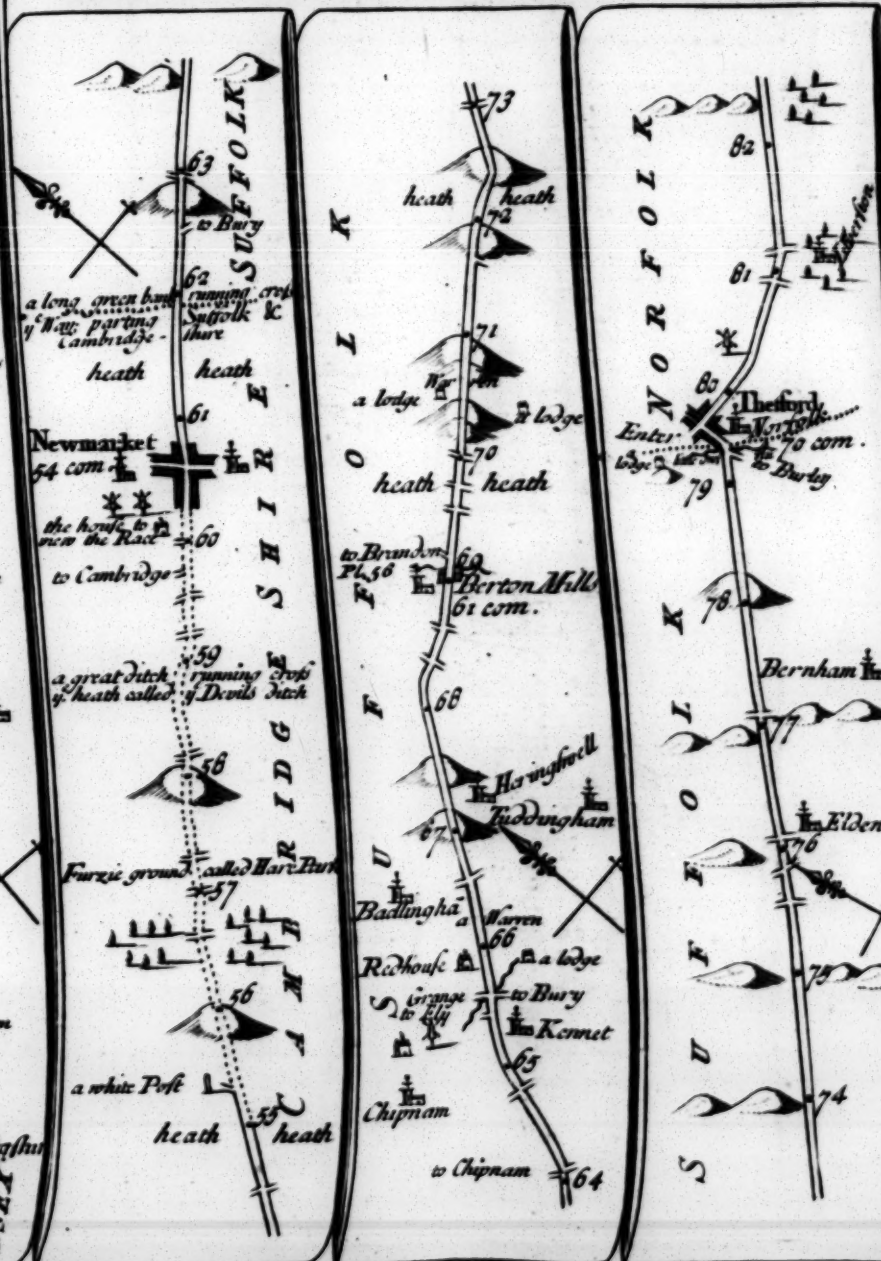 SUFFOLK
63
to Bury
62
a long green bank running cross
yͤ Way, parting Suffolk &
Cambridge-shire
heath heath
61
Newmarket
54 com.
the house to
view the Race
60
to Cambridge
59
a great ditch running cross
yͤ heath called yͤ Devils ditch
58
Furzie ground called Hare Park
57
56
a white Post
55
heath heath
CAMBRIDGESHIRE
73
heath heath
72
71
Warren
a lodge
a lodge
70
heath heath
to Brandon
Pl. 56
69
Berton Mills
61 com.
68
Haringswell
Tuddingham
67
Badlingha
a Warren
66
Redhouse
a lodge
Grange
to Bury
to Ely
Kennet
65
Chipnam
to Chipnam
64
SUFFOLK
NORFOLK
82
81
80
Thetford
Norfolk
Enter
70 com.
lodge
to Burley
79
78
Bernham
77
Elden
76
75
74
SUFFOLK